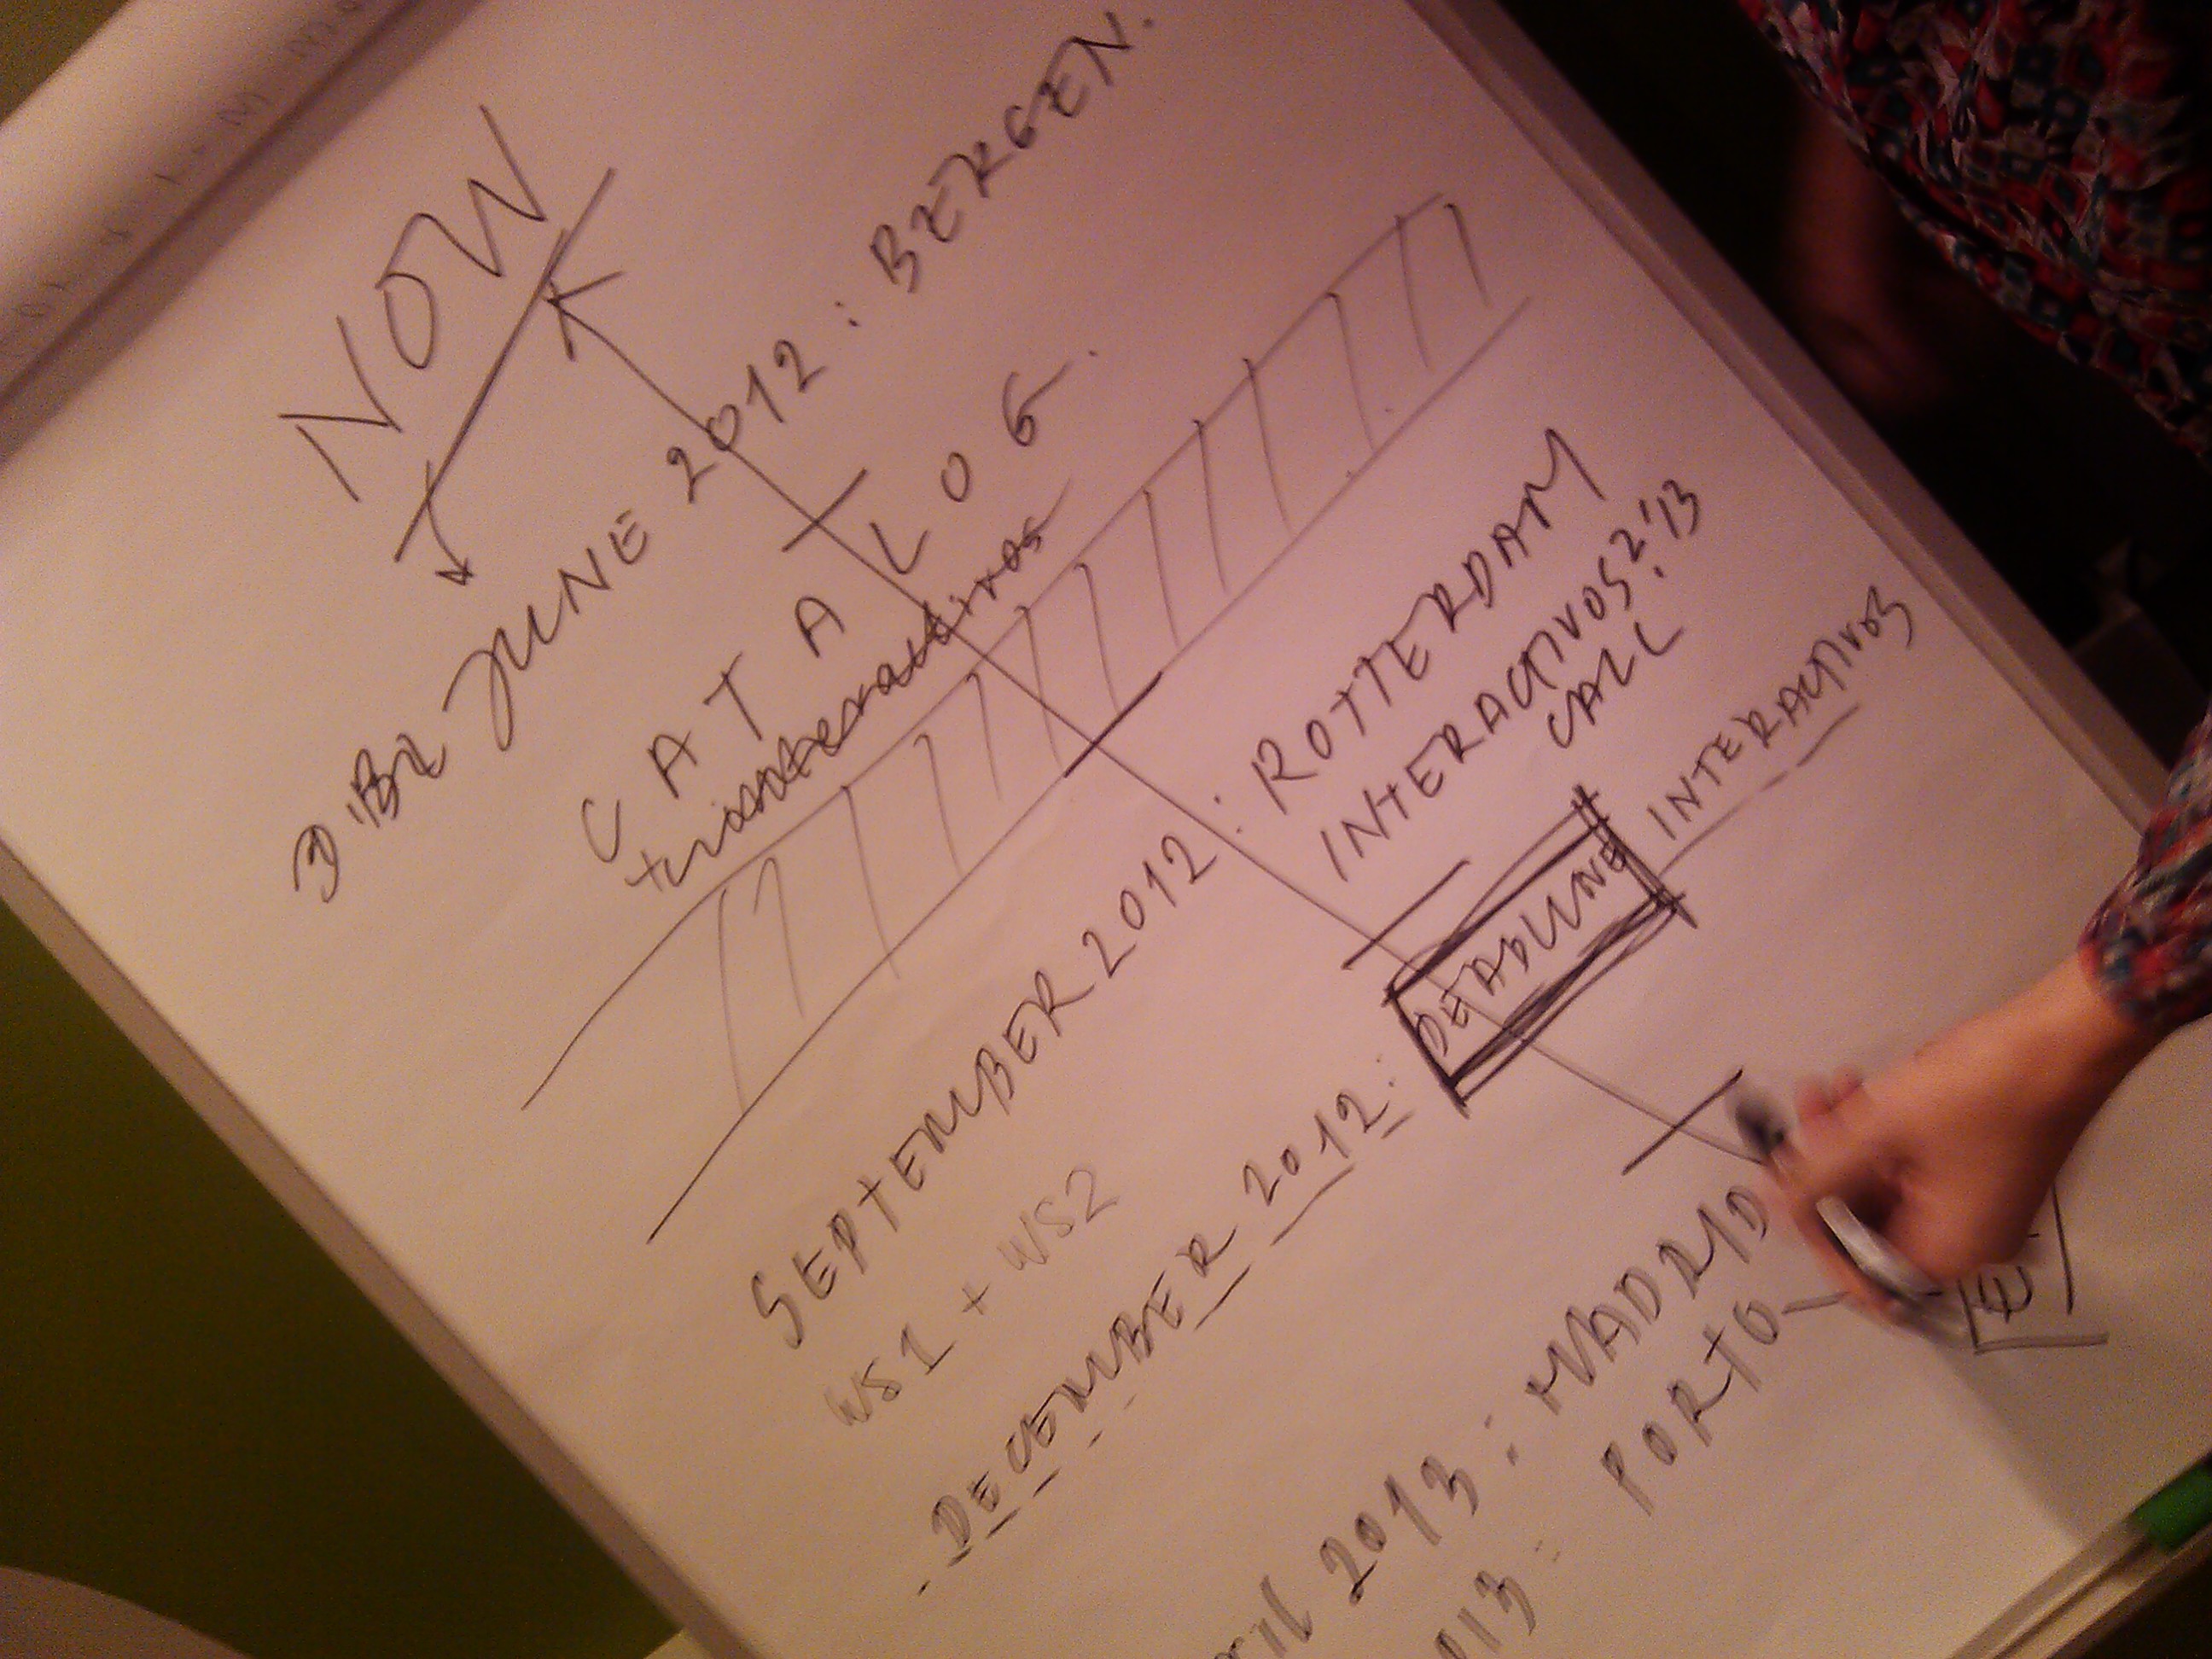 NOW
JUNE 2012 : BERGEN.
CATALOG.
SEPTEMBER 2012 : ROTTERDAM
INTERACTIVOS?'13
CALL
WS1 + WS2
DECEMBER 2012 : DEADLINE INTERACTIVOS
2013 : MADRID
PORTO